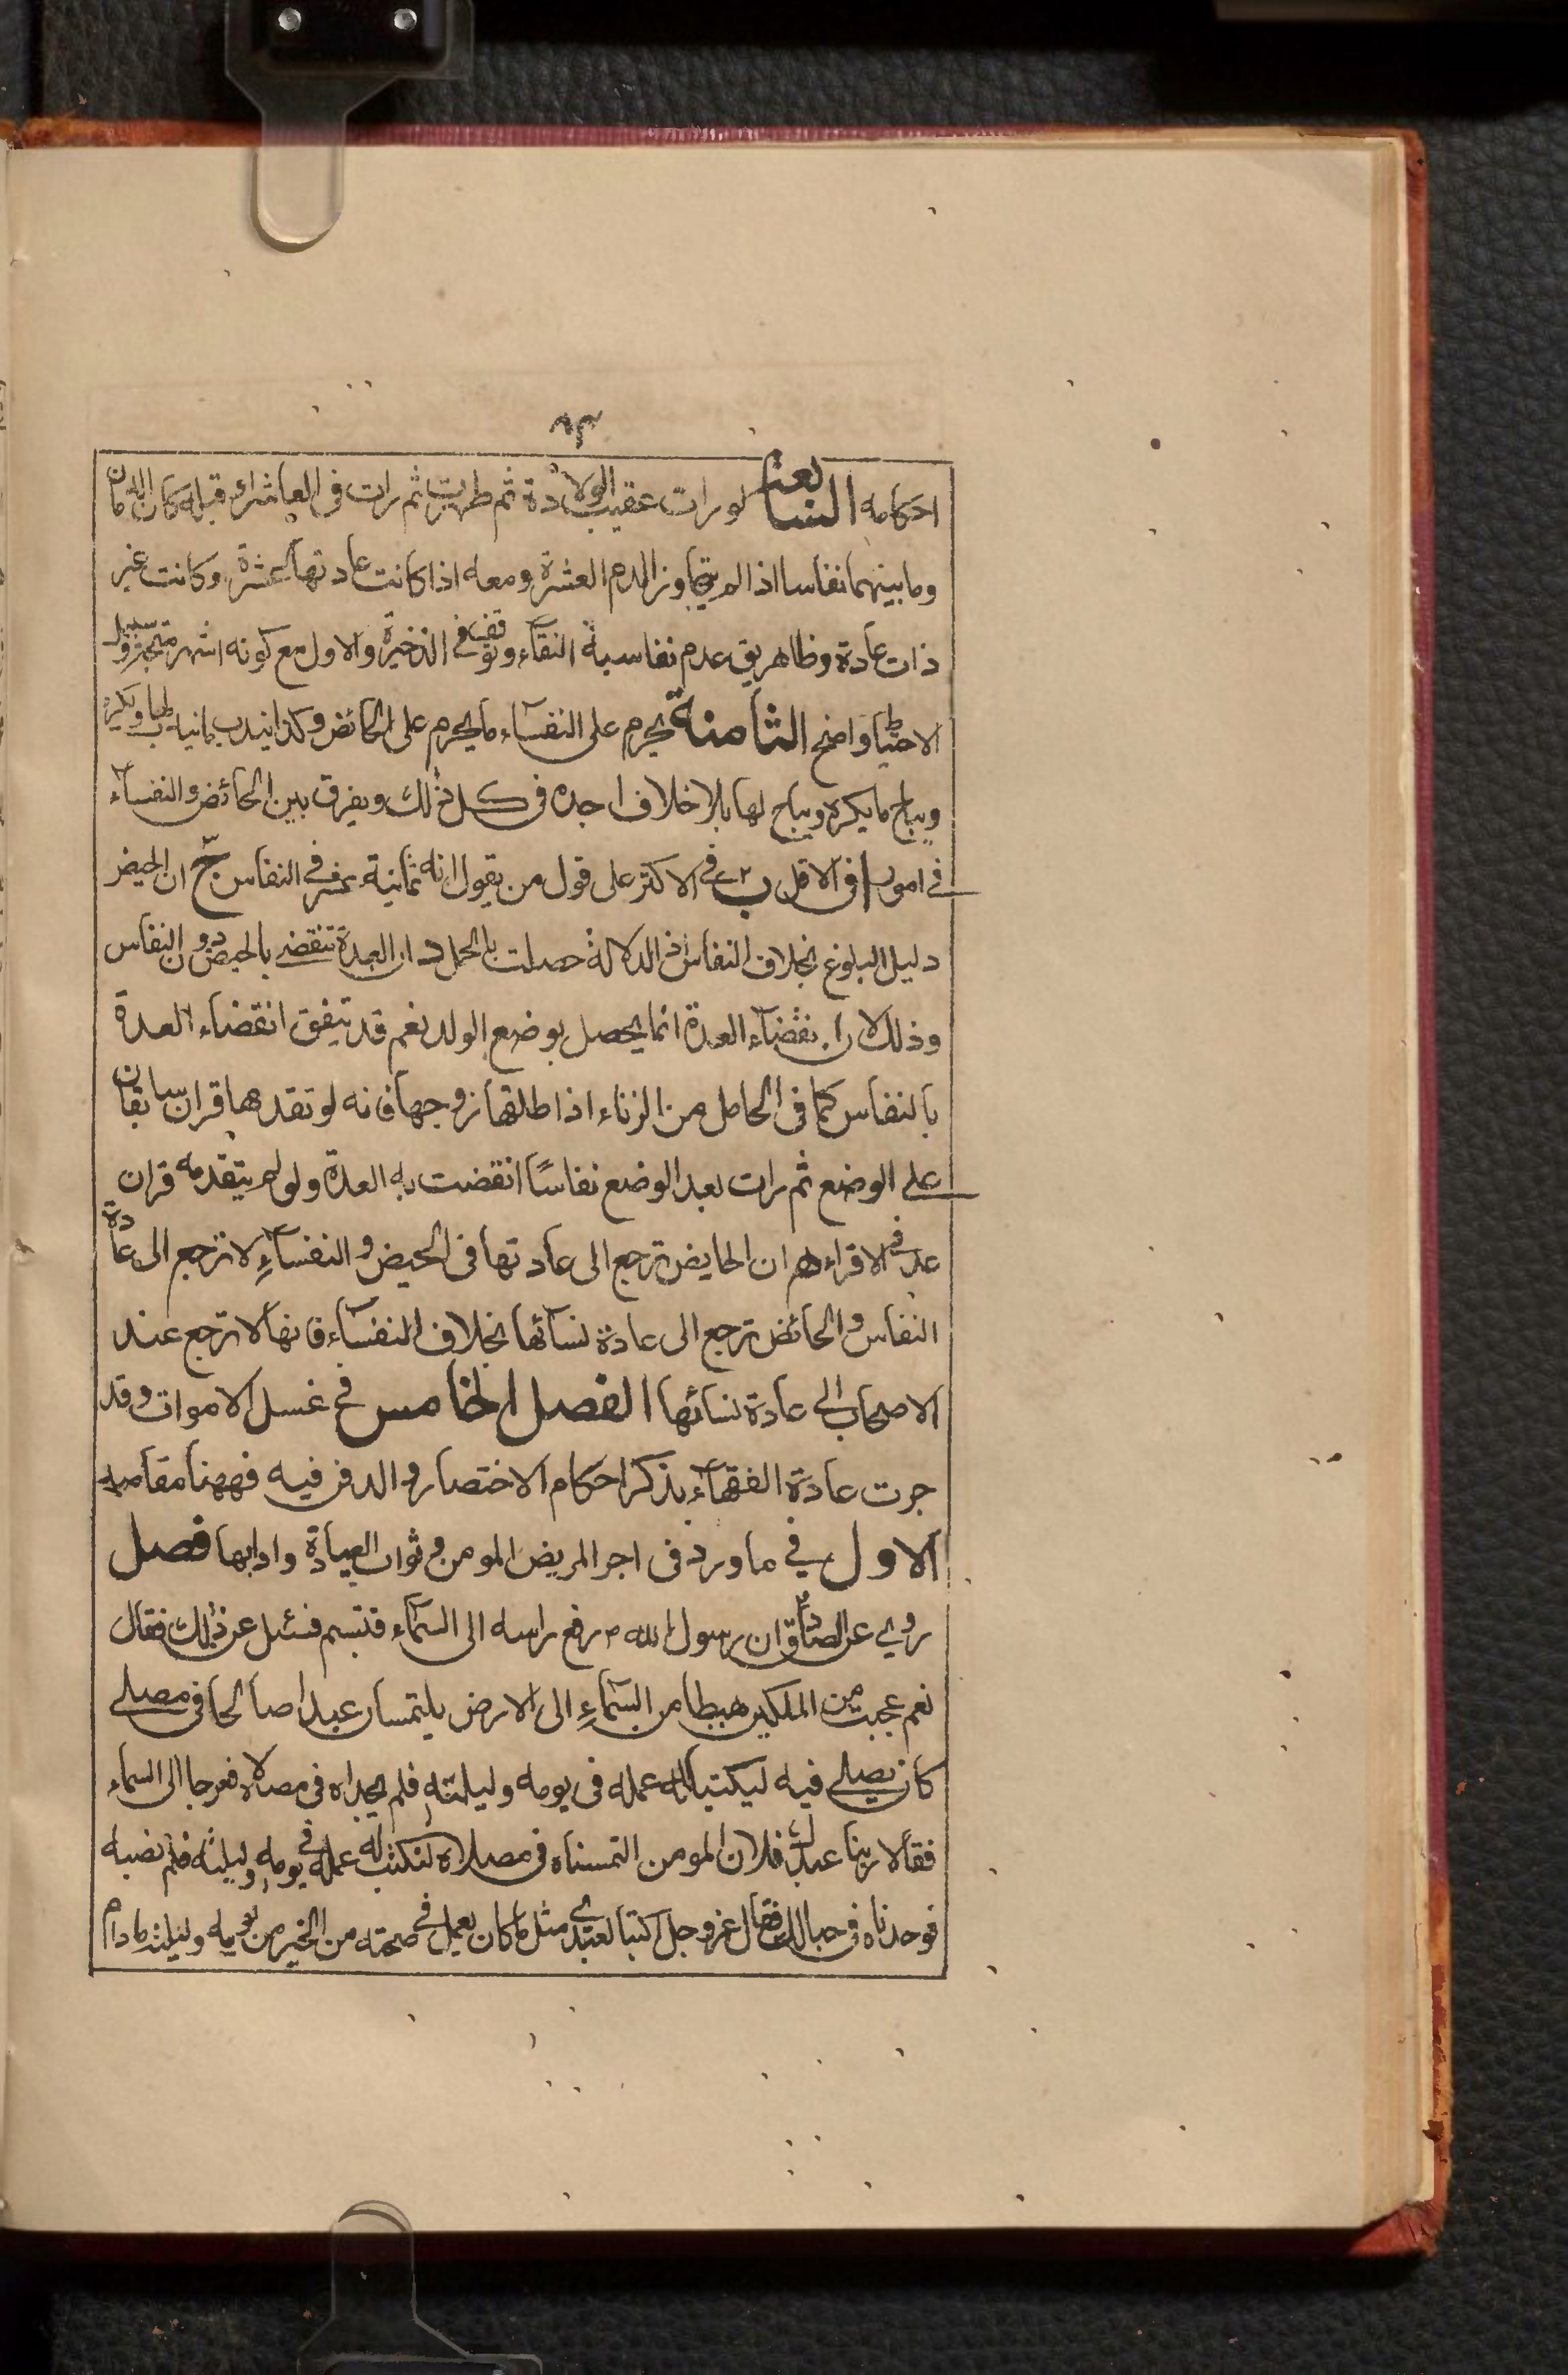 ٨٣
احكامه السابعة لو رات عقيب الولادة ثم طهرت ثم رات فى العاشر او قبله كان الدمان
وما بينهما نفاسا اذا لم يتجاوز الدم العشرة ومعه اذا كانت عادتها عشرة وكانت غير
ذات عادة وظاهر يق عدم نفاسية النقآء وتوقف فى الذخيرة والاول مع كونه اشهر
الاحتياط واضح الثامنة يحرم على النفسآء ما يحرم على الحائض وكذا يندب مايندب لها ويكره
ويباح ما يكره ويباح لها بلا خلاف اجده فى كل ذلك ويفرق بين الحائض والنفسآء
فى امور ا فى الاقل ب فى الاكثر على قول من يقول انه ثمانية عشر فى النفاس ج ان الحيض
دليل البلوغ بخلاف النفاس اذ الدلالة حصلت بالحمل د ان العدة تنقضى بالحيض دون النفاس
وذلك لان انقضآء العدة انما يحصل بوضع الولد نعم قد يتفق انقضاء العدة
بالنفاس كما فى الحامل من الزناء اذا طلقها زوجها فانه لو تقدمها قران سابقان
على الوضع ثم رات بعد الوضع نفاسًا انقضت به العدة ولو لم يتقدمه قران
عد فى الاقراء ه ان الحايض ترجع الى عادتها فى الحيض والنفسآءِ لا ترجع الى عادة
النفاس و الحائض ترجع الى عادة نسآئها بخلاف النفسآء فانها لا ترجع عند
الاصحاب الى عادة نسائها الفصل الخامس فى غسل الاموات وقد
جرت عادة الفقهآء بذكر احكام الاختصار والدفن فيه فههنا مقاصد
الاول فى ما ورد فى اجر المريض المومن وثواب العيادة وادابها فصل
روى عن الصادق ان رسول الله ص رفع راسه الى السمآء فتبسم فسئل عن ذلك فقال
نعم عجبت من الملكين هبطا من السمآءِ الى الارض يلتمسان عبدا صالحا فى مصلى
كان يصلى فيه ليكتبا له عمله فى يومه وليلته فلم يجداه فى مصلاه فعرجا الى السماء
فقالا ربنا عبدك فلان المومن التمسناه فى مصلاه لنكتب له عمله فى يومه وليلته فلم نصبه
فوجدناه فى حبالك فقال عز وجل اكتبا لعبدى مثل ما كان يعمل فى صحته من الخير من يومه وليلته مادام